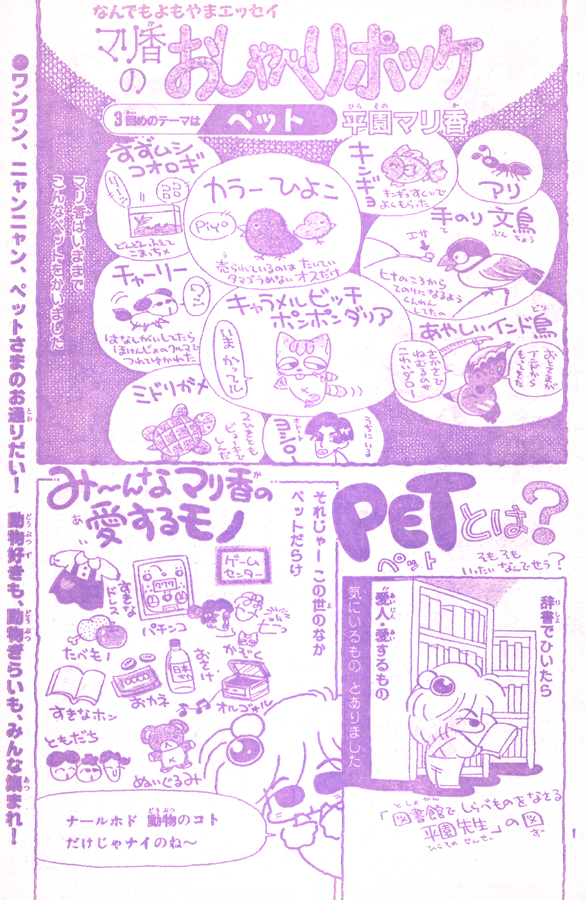 なんでもよもやまエッセイ
マリ香の
おしゃべりポッケ
3回めのテーマは
ペット
平園マリ香
●ワンワン、ニャンニャン、ペットさまのお通りだい! 動物好きも、動物ぎらいも、みんな集まれ!
マリ香はいままで
こんなペットをかいました
キンギョ
キンギョすくいで
よくもらった
アリ
すずムシ
コオロギ
どんどんふえて
こまっちゃう
カラーひよこ
Piyo
売られているのは たいてい
タマゴうめない オスだけ
手のり文鳥
エサ
ヒナのころから
てのりになるよう
くんれん
したの
チャーリー
ワン
はなしがいしてたら
ほけんじょのクルマで
つれてゆかれた
キャラメルビッチ
ポンポンダリア
いま かってる
あやしいインド鳥
ミドリガメ
ヨシロー
PETとは?
ペット
そもそも
いったい なんでせう?
辞書でひいたら
“愛人・愛するもの
気にいるもの とありました
「図書館でしらべものをなさる
平園先生」の図
み〜んなマリ香の
愛するモノ
それじゃー この世のなか
ペットだらけ
すてきな
ドレス
パチンコ
ゲーム
センター
たべもの
おカネ
おさけ
かぞく
すきなホン
オルゴール
ともだち
ぬいぐるみ
ナールホド 動物のコト
だけじゃナイのね〜
1